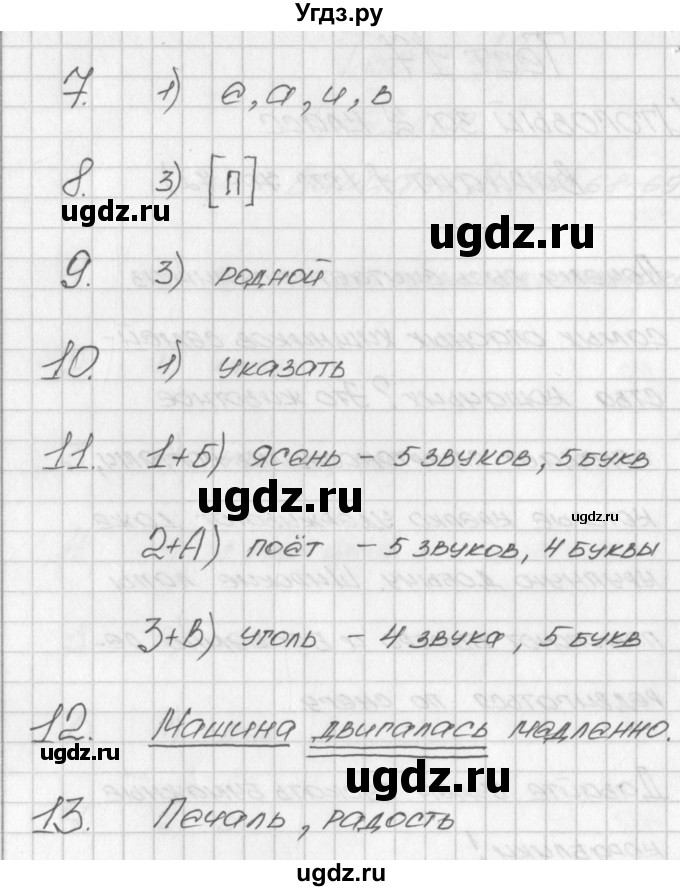 Угдз.ру
7. 1) е, а, и, в
8. 3) [п]
ugdz.ru
ugdz.ru
9. 3) родной
10. 1) указать
11. 1+Б) ясень - 5 звуков, 5 букв
ugdz.ru
ugdz.ru
2+А) поёт - 5 звуков, 4 буквы
3+В) уголь - 4 звука, 5 букв
12. Машина двигалась медленно.
ugdz.ru
ugdz.ru
13. Печаль, радость
ugdz.ru